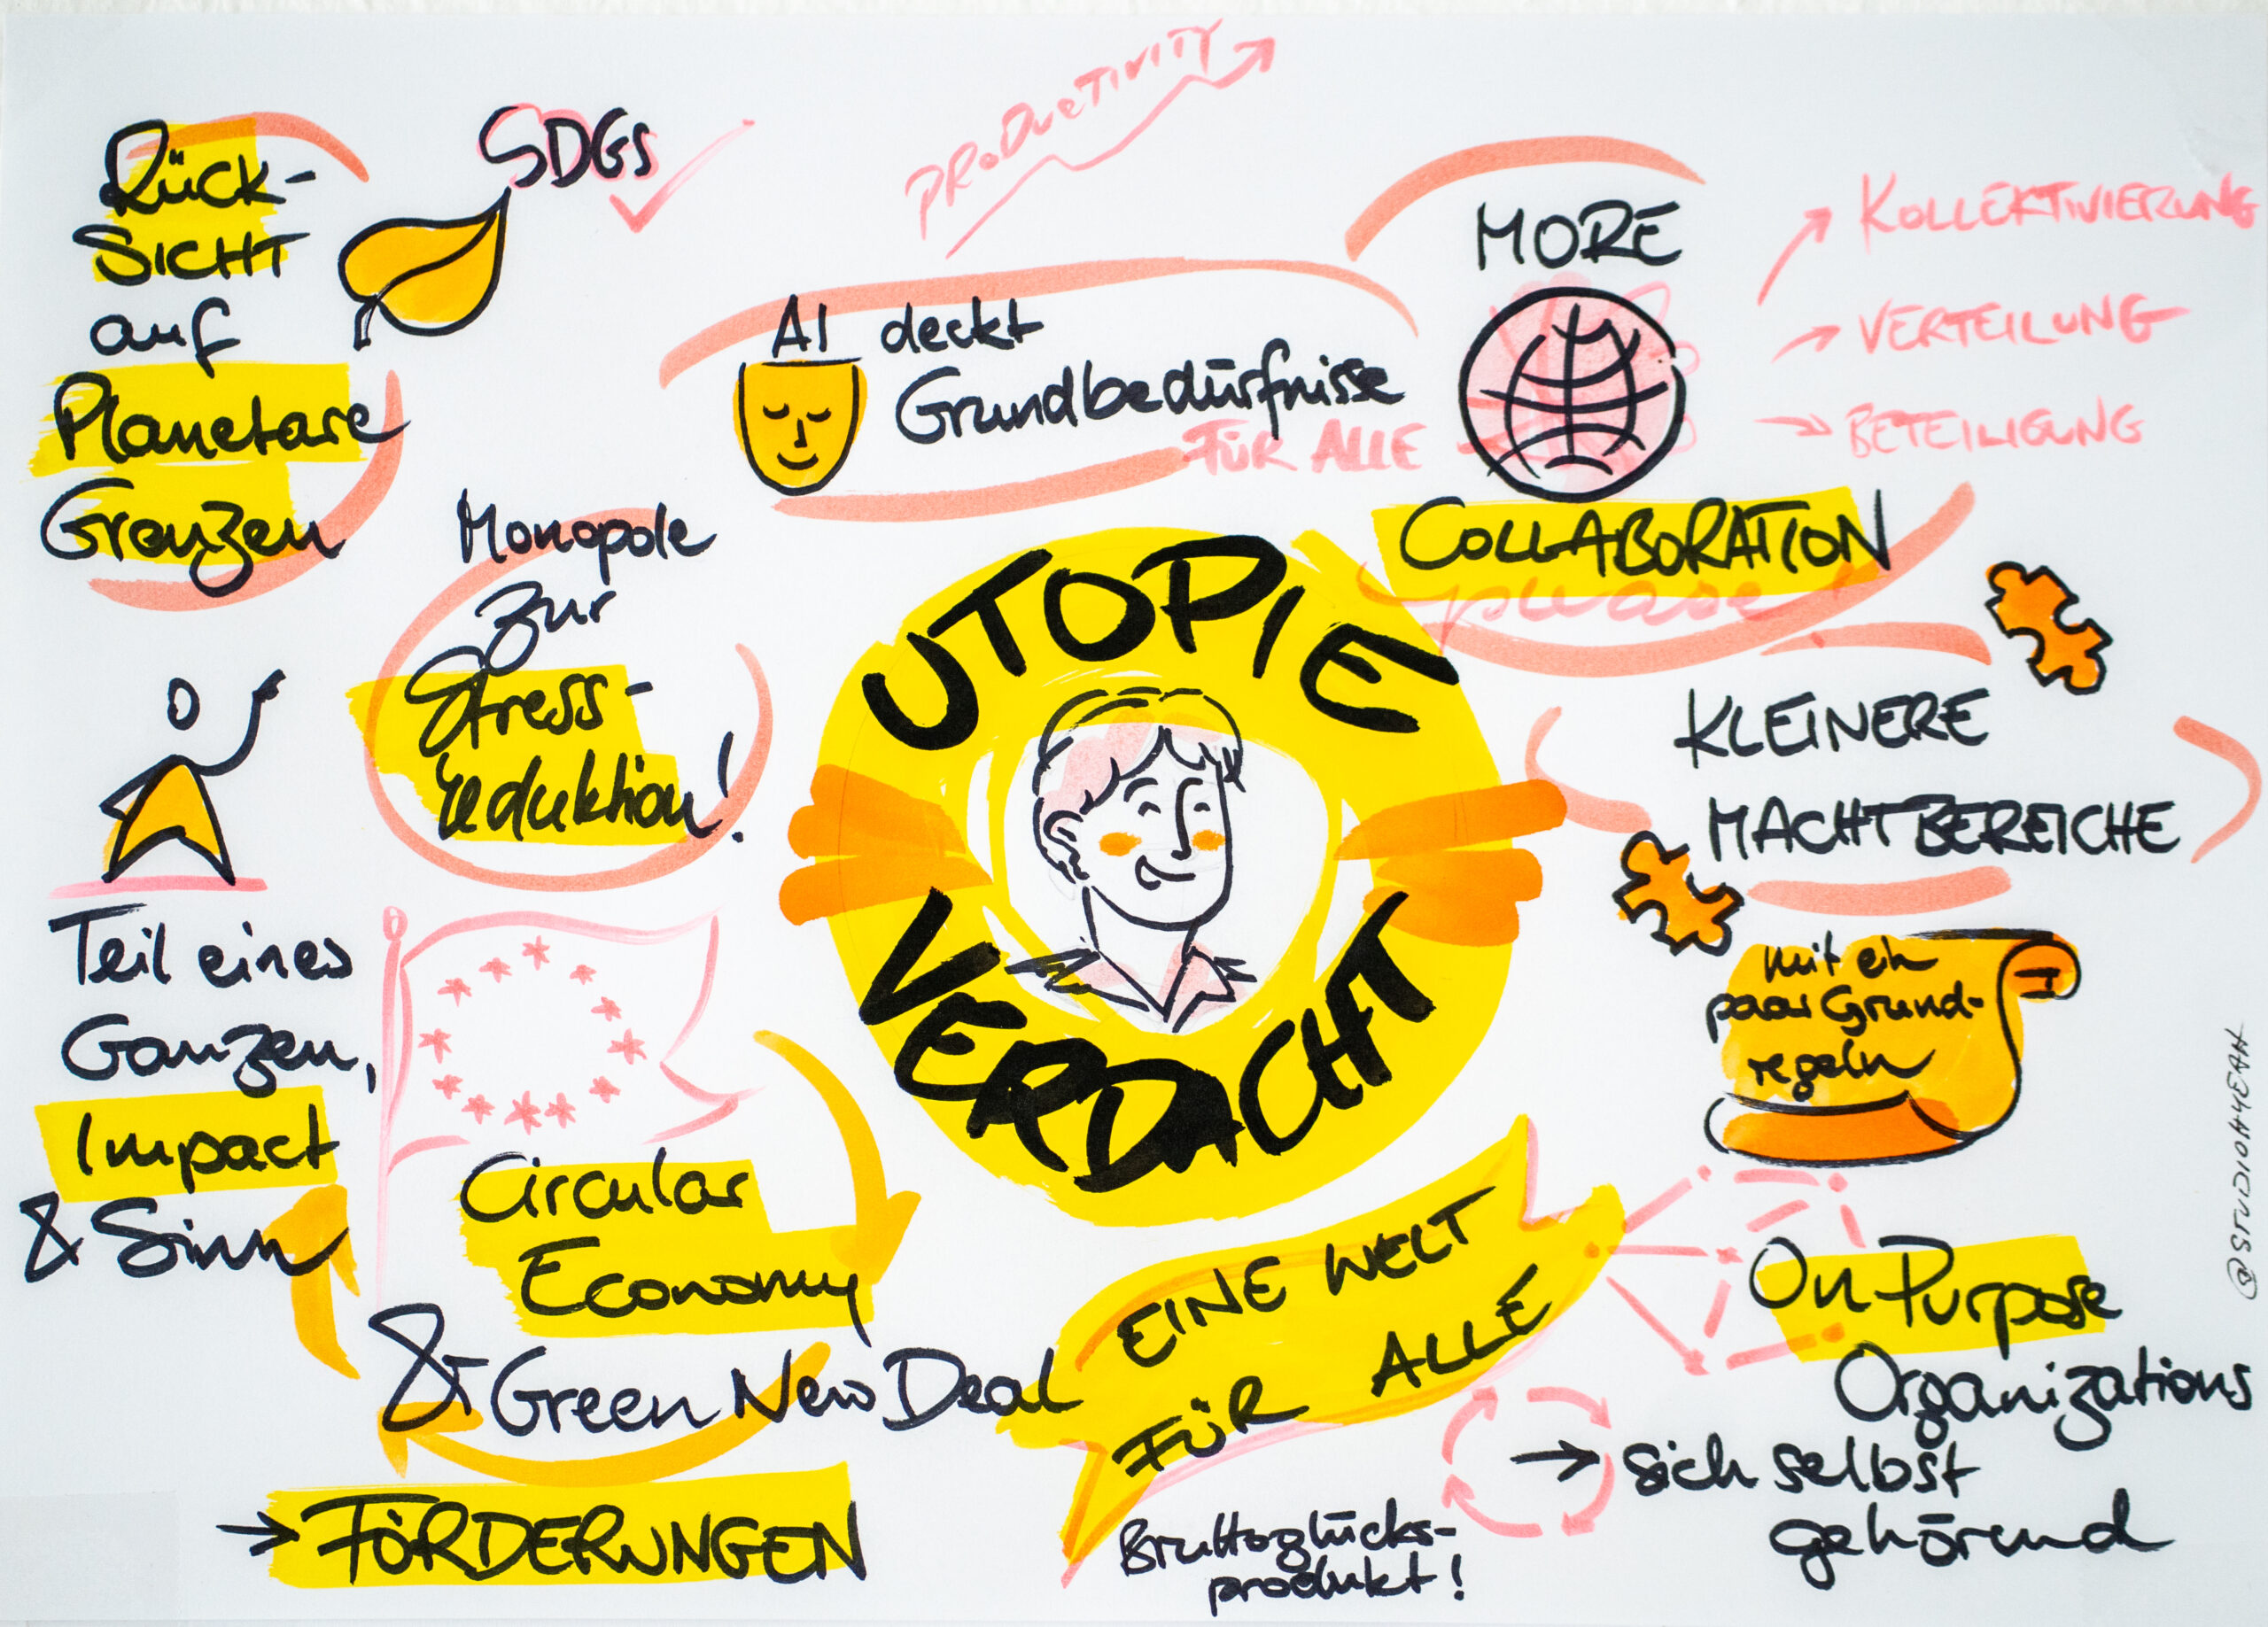 PRODUCTIVITY
Rück-
SICHT
auf
Planetare
Grenzen
SDGs
AI deckt
Grundbedürfnisse
FÜR ALLE
MORE
COLLABORATION
please!
KOLLEKTIVIERUNG
VERTEILUNG
BETEILIGUNG
Monopole
zur
Stress-
reduktion!
UTOPIE
VERDACHT
KLEINERE
MACHTBEREICHE
mit ein
paar Grund-
regeln
Teil eines
Ganzen,
Impact
& Sinn
Circular
Economy
& Green New Deal
→ FÖRDERUNGEN
EINE WELT
FÜR ALLE
Bruttoglücks-
produkt!
On Purpose
Organizations
→ sich selbst
gehörend
@STUDIOHYEAH